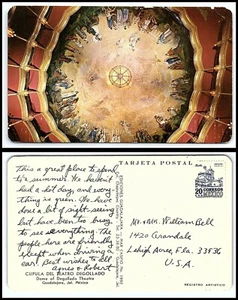 TARJETA POSTAL
This is a great place to spend
the summer. We haven't
had a hot day, and every-
thing is green. We have
done a lot of sight-seeing
but have been too busy
to see everything. The
people here are friendly
except when driving a
car. Best wishes to all
Agnes & Robert
CUPULA DEL TEATRO DEGOLLADO
Dome of Degollado Theatre
Guadalajara, Jal. Mexico
20 CORREOS
Mr. & Mrs. William Bell
1420 Grandale
Lehigh Acres, Fla. 33936
U.S.A.
REGISTRO ARTISTICO